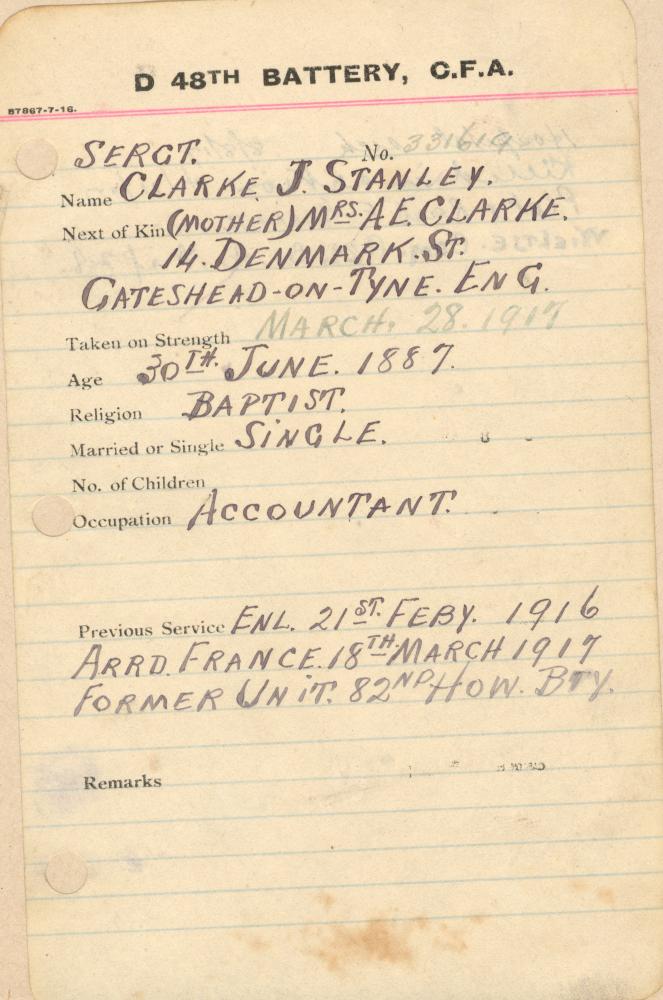 D 48TH BATTERY, C.F.A.
B7867-7-16.
SERGT. No. 331619
Name CLARKE J. STANLEY.
Next of Kin (MOTHER) MRS. A.E. CLARKE.
14. DENMARK. ST.
GATESHEAD-ON-TYNE. ENG.
Taken on Strength MARCH. 28. 1917
Age 30TH. JUNE. 1887.
Religion BAPTIST.
Married or Single SINGLE.
No. of Children
Occupation ACCOUNTANT.
Previous Service ENL. 21ST. FEBY. 1916
ARRD. FRANCE. 18TH MARCH 1917
FORMER UNIT. 82ND HOW. BTY.
Remarks